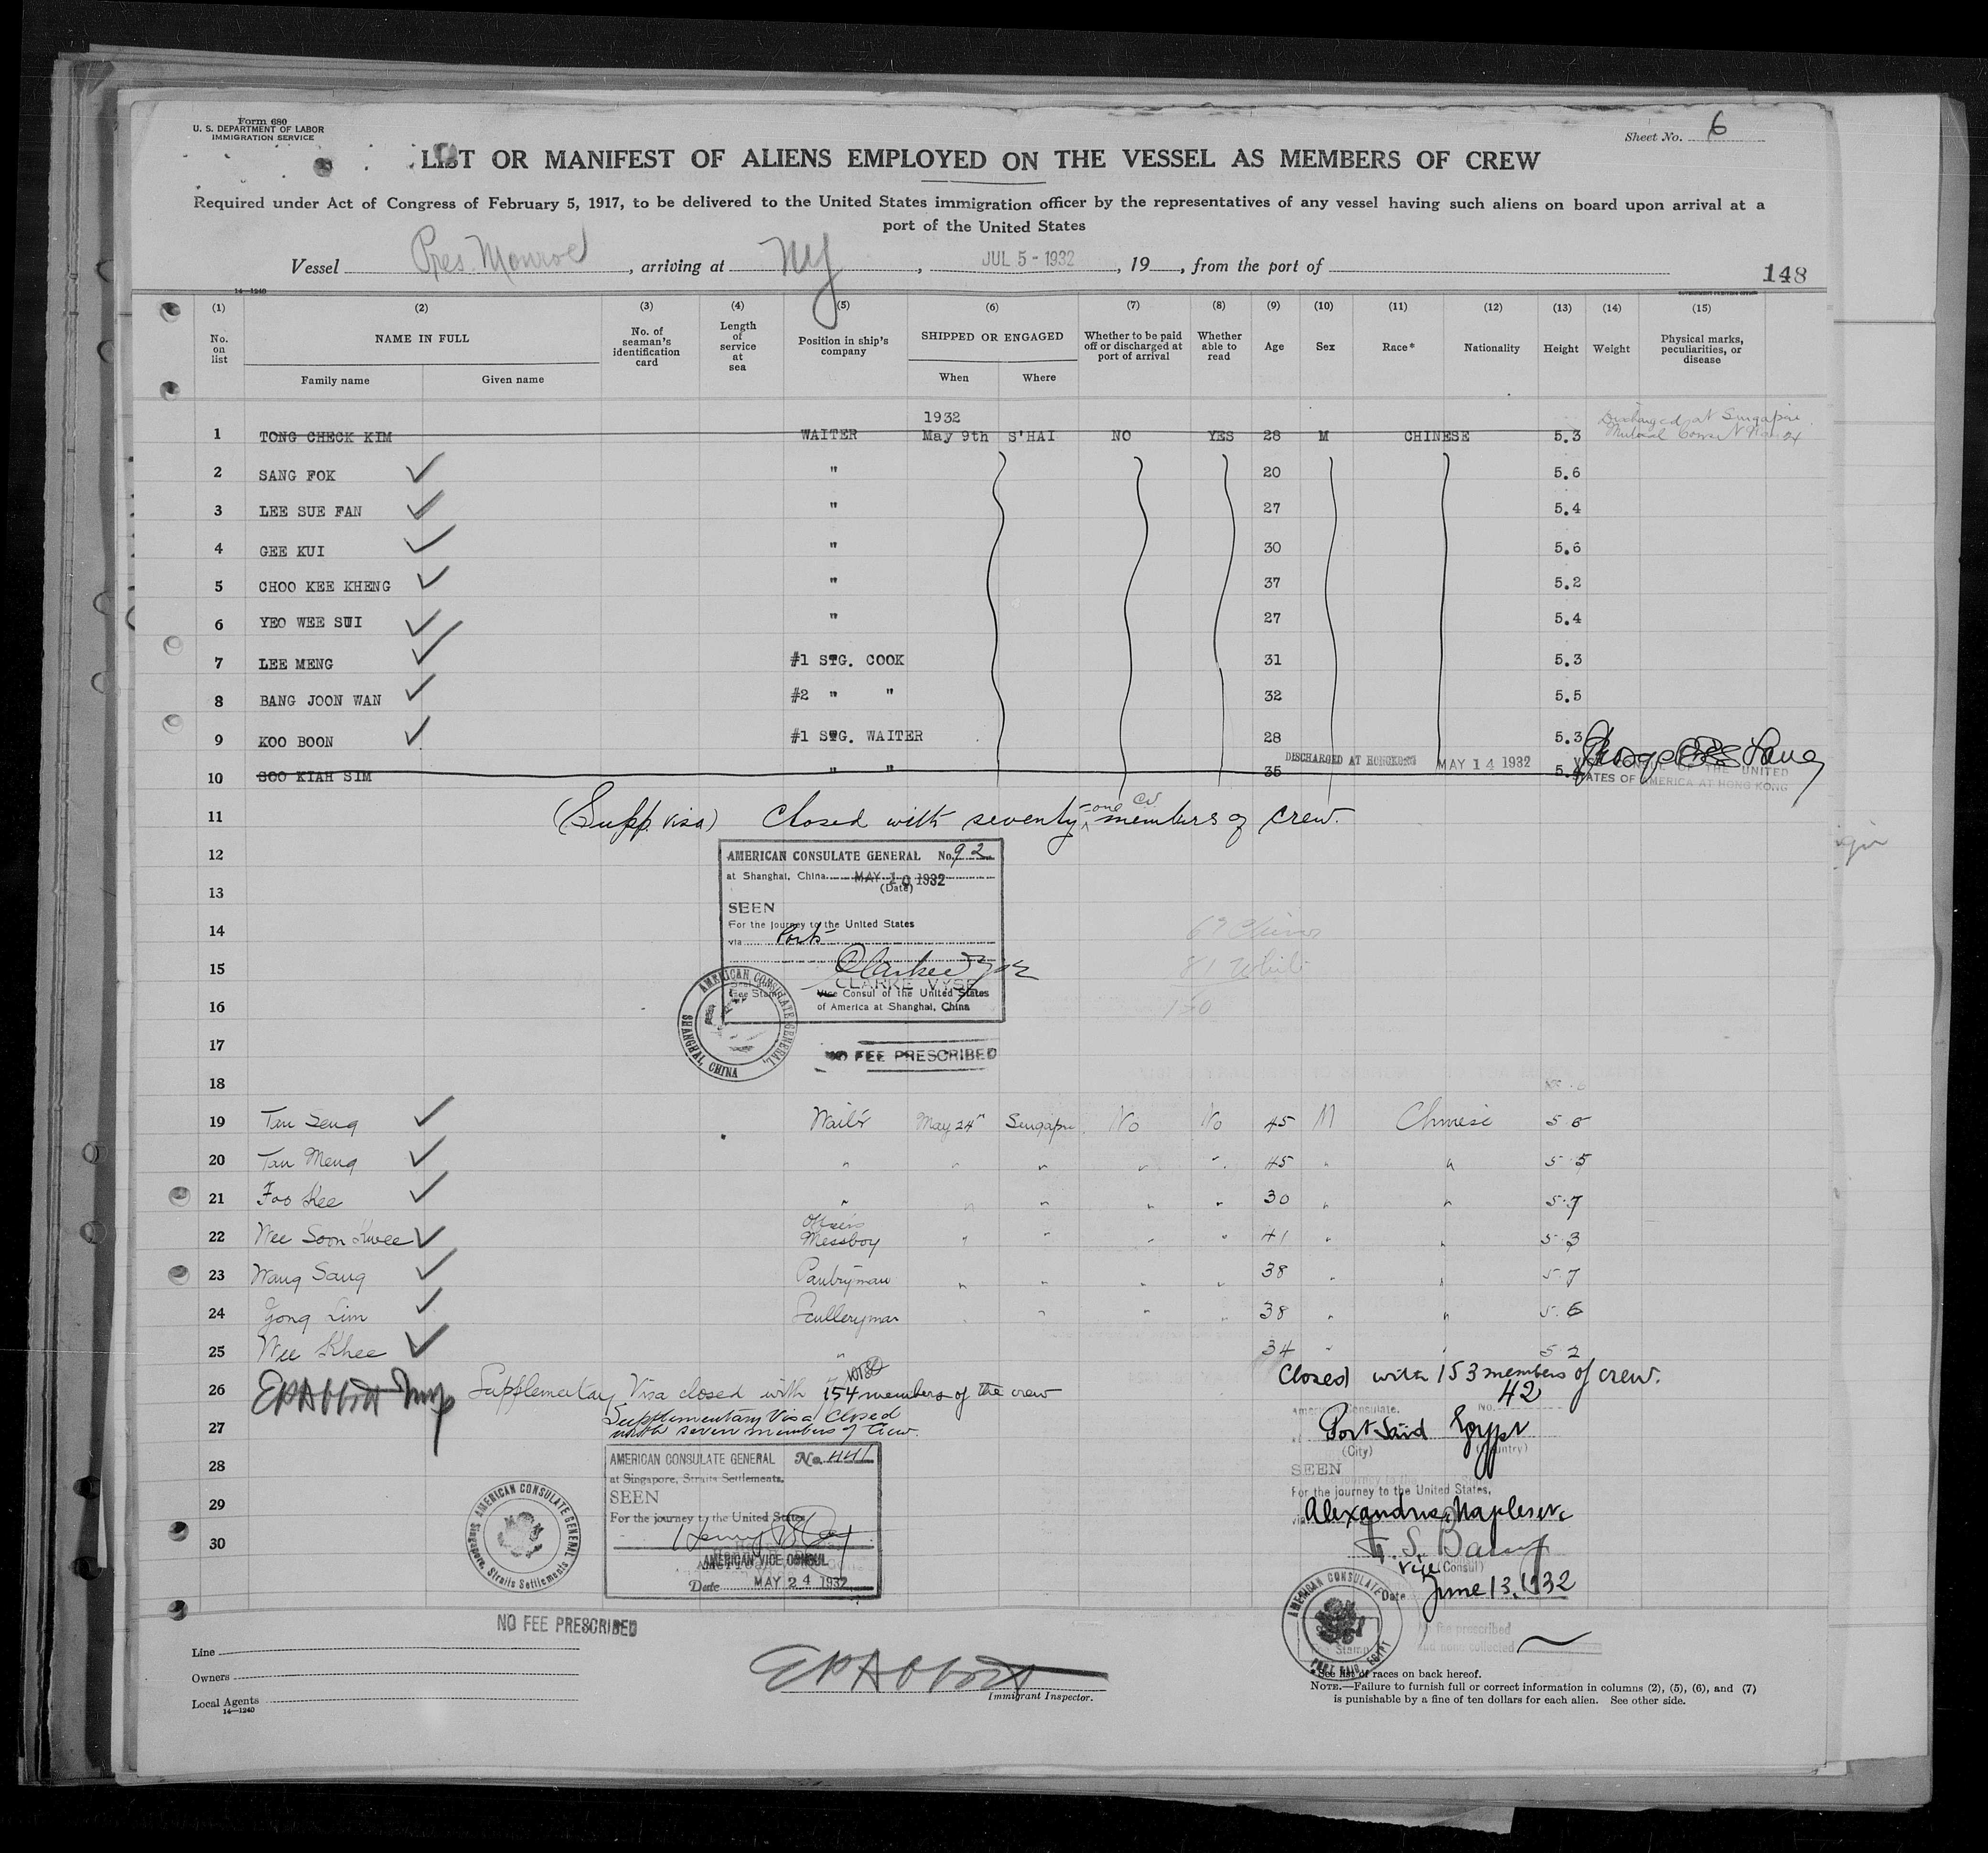 Form 680
U. S. DEPARTMENT OF LABOR
IMMIGRATION SERVICE
Sheet No. 6
LIST OR MANIFEST OF ALIENS EMPLOYED ON THE VESSEL AS MEMBERS OF CREW
Required under Act of Congress of February 5, 1917, to be delivered to the United States immigration officer by the representatives of any vessel having such aliens on board upon arrival at a
port of the United States
Vessel Pres. Monroe, arriving at NY, JUL 5 - 1932, 19, from the port of
148
14—1240
(1) (2) (3) (4) (5) (6) (7) (8) (9) (10) (11) (12) (13) (14) (15)
No. on list NAME IN FULL Family name Given name No. of seaman's identification card Length of service at sea Position in ship's company SHIPPED OR ENGAGED When Where Whether to be paid off or discharged at port of arrival Whether able to read Age Sex Race* Nationality Height Weight Physical marks, peculiarities, or disease
1932
1 TONG CHECK KIM WAITER May 9th S'HAI NO YES 28 M CHINESE 5.3 Discharged at Singapore Mutual Consent
2 SANG FOK " 20 5.6
3 LEE SUE FAN " 27 5.4
4 GEE KUI " 30 5.6
5 CHOO KEE KHENG 37 5.2
6 YEO WEE SUI " 27 5.4
7 LEE MENG #1 STG. COOK 31 5.3
8 BANG JOON WAN #2 " " 32 5.5
9 KOO BOON #1 STG. WAITER 28 5.3
10 SOO KIAH SIM " " 35 DISCHARGED AT HONGKONG MAY 14 1932
VICE CONSUL OF THE UNITED
STATES OF AMERICA AT HONG KONG
11 (Supp. visa) Closed with seventy-one members of crew.
12
13
14
15
16
17
18
AMERICAN CONSULATE GENERAL No. 92
at Shanghai, China MAY 10 1932
(Date)
SEEN
For the journey to the United States
via Ports
CLARKE VYSE
Vice Consul of the United States
of America at Shanghai, China
AMERICAN CONSULATE GENERAL, SHANGHAI, CHINA
NO FEE PRESCRIBED
81 White
150
19 Tan Seng Waiter May 24" Singapore No No 45 M Chinese 5 6
20 Tan Meng " " " " " 45 " " 5 5
21 Foo Kee " " " " " 30 " " 5.7
22 Wee Soon Kwee Officers Messboy " " " " 41 " " 5 3
23 Wang Sang Pantryman " " " " 38 " " 5.7
24 Yong Lim Sculleryman " " " " 38 " " 5.6
25 Wee Khee " 34 " " 5 2
26 Supplementary Visa closed with 154 members of the crew
Closed with 153 members of crew.
27 Supplementary Visa Closed
with seven members of crew.
28
29
30
AMERICAN CONSULATE GENERAL No. 441
at Singapore, Straits Settlements.
SEEN
For the journey to the United States
AMERICAN VICE CONSUL
Date MAY 24 1932
AMERICAN CONSULATE GENERAL Singapore, Straits Settlements
NO FEE PRESCRIBED
American Consulate. No. 42
Port Said Egypt
(City) (Country)
SEEN
For the journey to the United States,
via Alexandria, Naples etc
Vice (Consul)
Date June 13, 1932
AMERICAN CONSULATE PORT SAID, EGYPT
Fee Stamp
No fee prescribed
and none collected
Line
Owners
Local Agents
14—1240
E P Abbott
Immigrant Inspector.
* See list of races on back hereof.
NOTE.—Failure to furnish full or correct information in columns (2), (5), (6), and (7)
is punishable by a fine of ten dollars for each alien. See other side.